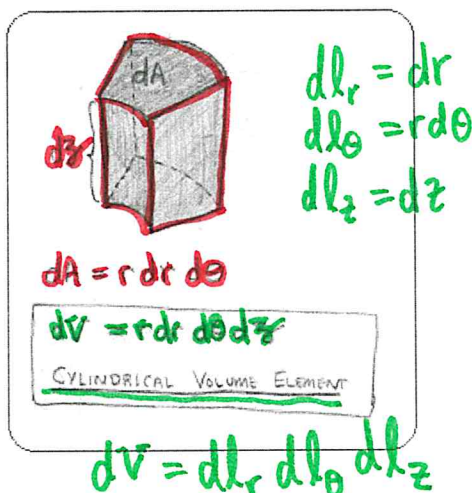 dA
dz
dl_r = dr
dl_θ = r dθ
dl_z = dz
dA = r dr dθ
dV = r dr dθ dz
CYLINDRICAL VOLUME ELEMENT
dV = dl_r dl_θ dl_z